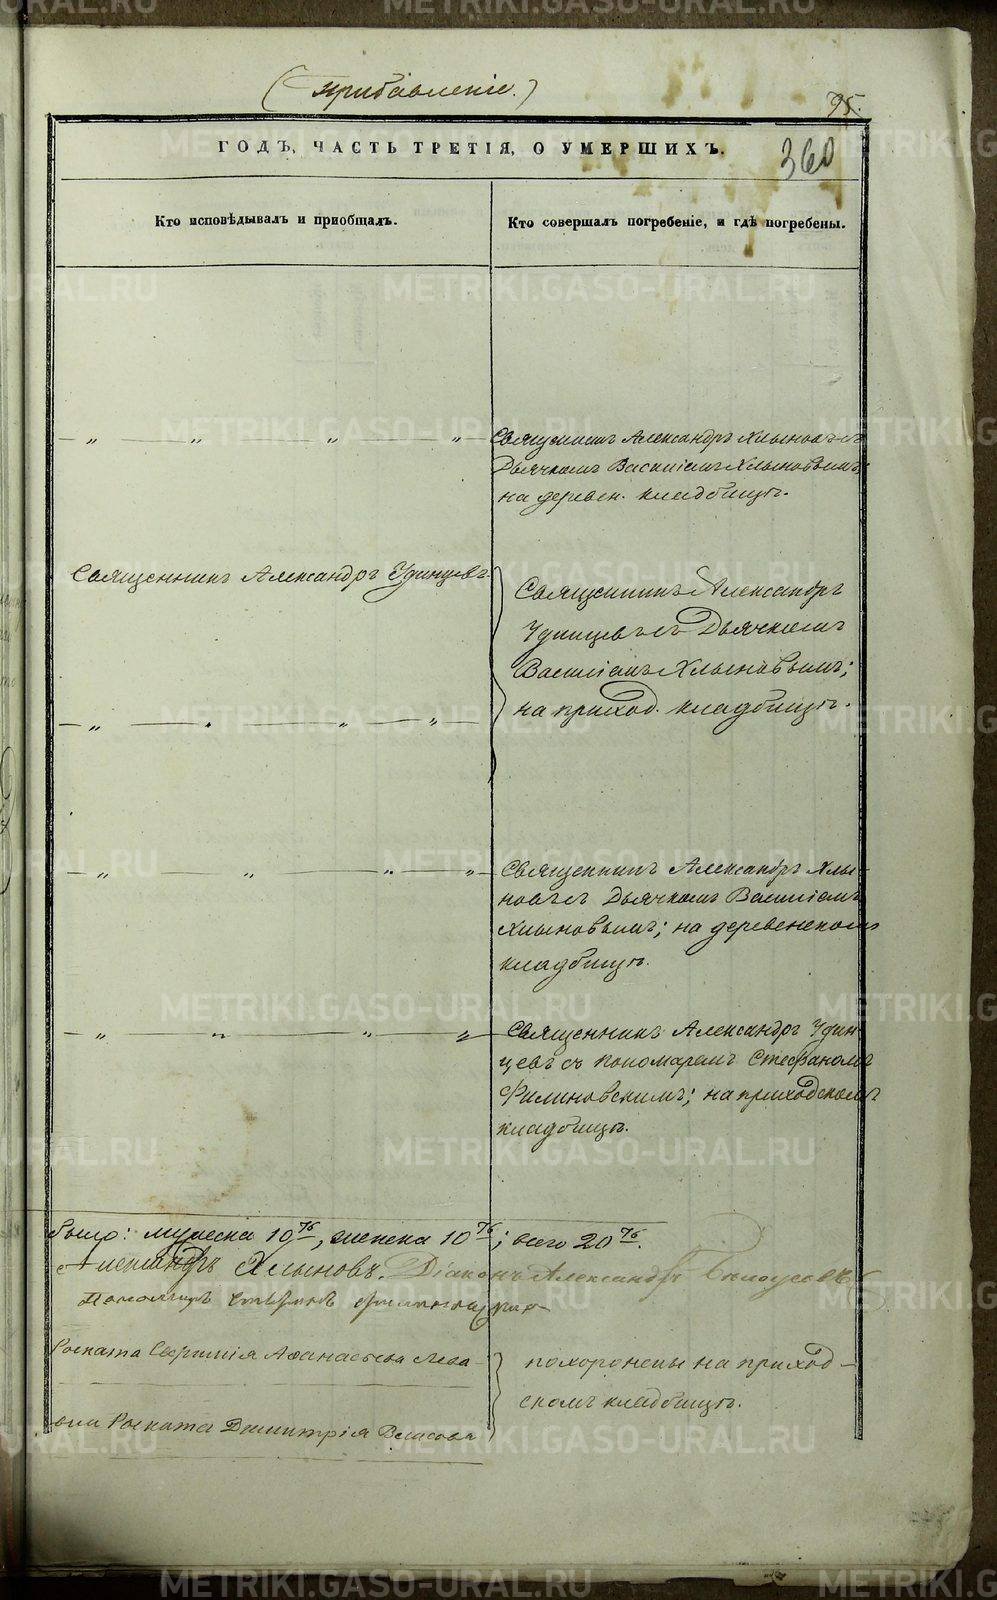 (Прибавленіе.)
95.
ГОДЪ, ЧАСТЬ ТРЕТІЯ, О УМЕРШИХЪ.
360
Кто исповѣдывалъ и пріобщалъ.
Кто совершалъ погребеніе, и гдѣ погребены.
Священникъ Александръ Хлыновъ съ
Дьячкомъ Василіемъ Хлыновымъ;
на деревен. кладбищѣ.
Священникъ Александръ Удинцевъ.
Священникъ Александръ
Удинцевъ съ Дьячкомъ
Василіемъ Хлыновымъ;
на приход. кладбищѣ.
Священникъ Александръ Хлы-
новъ съ Дьячкомъ Василіемъ
Хлыновымъ; на деревенскомъ
кладбищѣ.
Священникъ Александръ Удин-
цевъ съ пономаремъ Стефаномъ
Филиновскимъ; на приходскомъ
кладбищѣ.
было: мужеска 10ть, женска 10ть; всего 20ть.
Александръ Хлыновъ. Діаконъ Александръ Бѣлоусовъ
Пономарь Стефанъ
Аѳанасьева
похоронены на приход-
скомъ кладбищѣ.
Димитрія Власова
METRIKI.GASO-URAL.RU